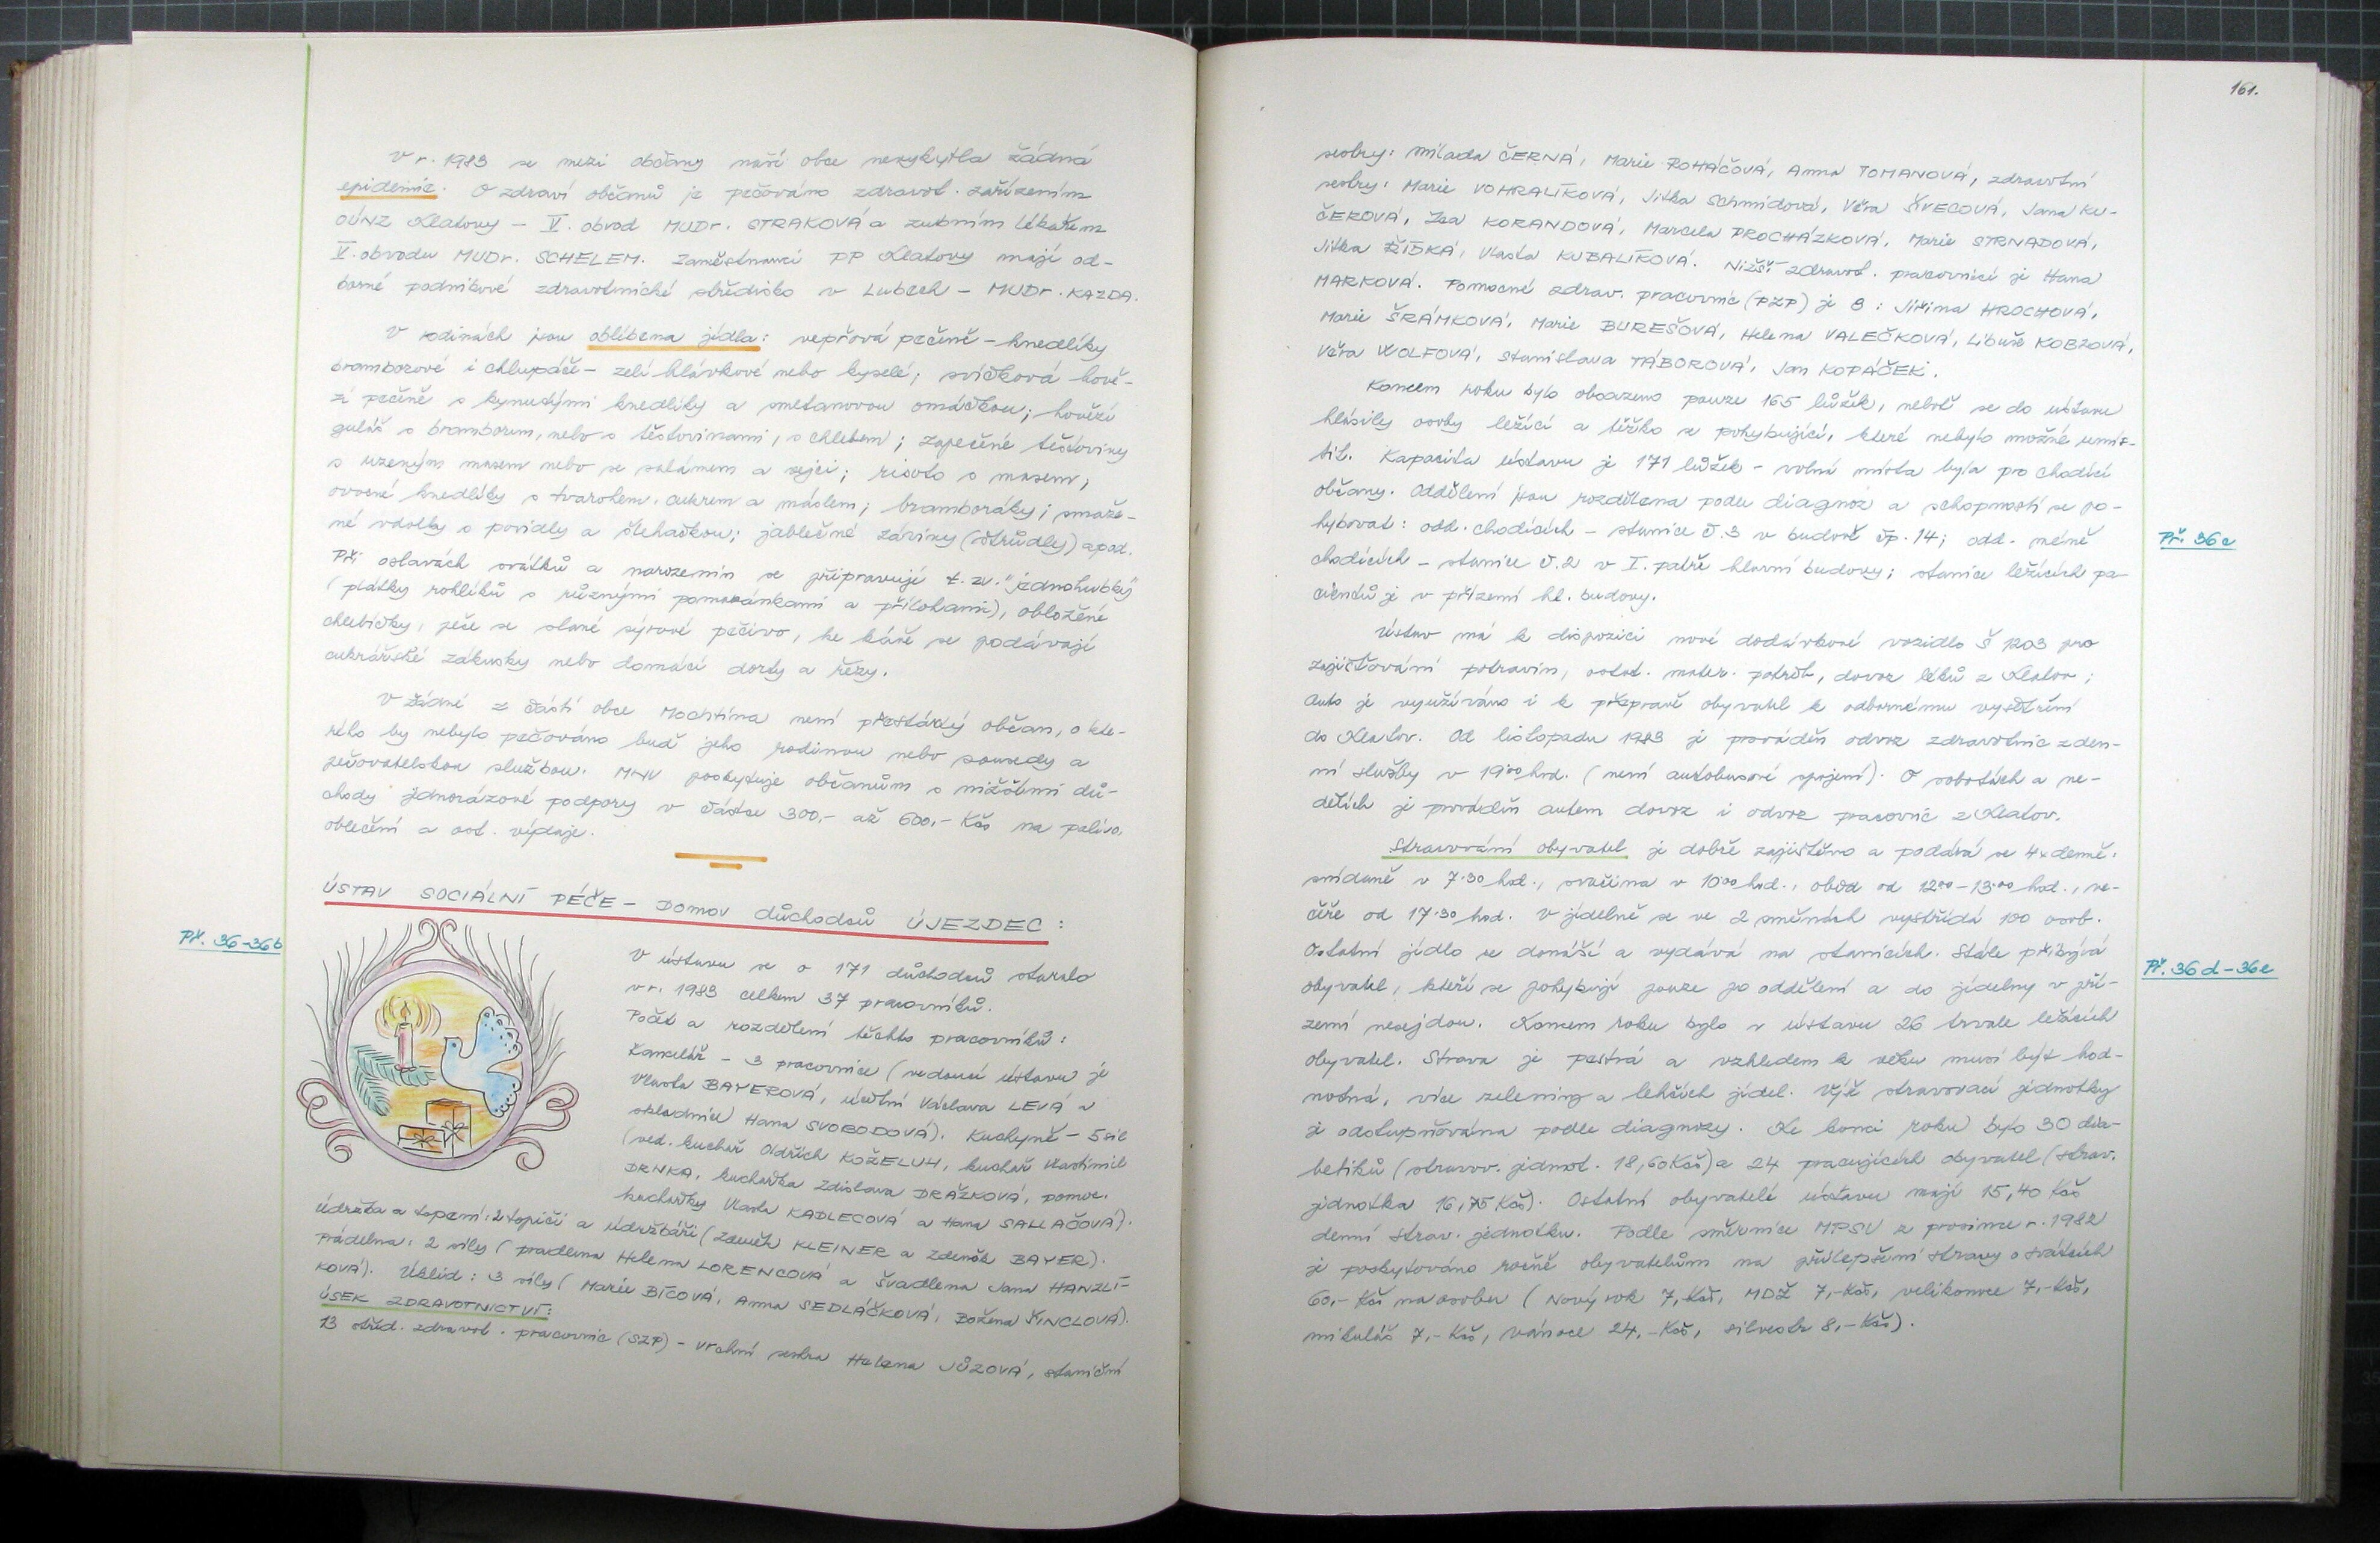 V r. 1983 se mezi občany naší obce nevyskytla žádná
epidemie. O zdraví občanů je pečováno zdravot. zařízením
OÚNZ Klatovy - V. obvod MUDr. STRAKOVÁ a zubním lékařem
V. obvodu MUDr. SCHELEM. Zaměstnanci PP Klatovy mají od-
borné podnikové zdravotnické středisko v Lubech - MUDr. KAZDA.
V rodinách jsou oblíbena jídla: vepřová pečeně - knedlíky
bramborové i chlupáče - zelí hlávkové nebo kyselé; svíčková hově-
zí pečeně s kynutými knedlíky a smetanovou omáčkou; hovězí
guláš s bramborem, nebo s těstovinami, s chlebem; zapečené těstoviny
s uzeným masem nebo se salámem a vejci; risoto s masem;
ovocné knedlíky s tvarohem, cukrem a máslem; bramboráky; smaže-
né vdolky s povidly a šlehačkou; jablečné záviny (štrůdly) apod.
Při oslavách svátků a narozenin se připravují t. zv. "jednohubky"
(plátky rohlíků s různými pomazánkami a přílohami), obložené
chlebíčky, peče se slané sýrové pečivo, ke kávě se podávají
cukrářské zákusky nebo domácí dorty a řezy.
V žádné z částí obce Mochtína není přestárlý občan, o kte-
rého by nebylo pečováno buď jeho rodinou nebo sousedy a
pečovatelskou službou. MNV poskytuje občanům s nižšími dů-
chody jednorázové podpory v částce 300,- až 600,- Kčs na palivo,
oblečení a ost. výdaje.
ÚSTAV SOCIÁLNÍ PÉČE - DOMOV důchodců ÚJEZDEC:
Př. 36-36b
V ústavu se o 171 důchodců staralo
v r. 1983 celkem 37 pracovníků.
Počet a rozdělení těchto pracovníků:
Kancelář - 3 pracovnice (vedoucí ústavu je
Vlasta BAYEROVÁ, účetní Václava LEVÁ a
skladnice Hana SVOBODOVÁ). Kuchyně - 5 sil
(ved. kuchař Oldřich KOŽELUH, kuchař Vlastimil
DRNKA, kuchařka Zdislava DRÁŽKOVÁ, pomoc.
kuchařky Vlasta KADLECOVÁ a Hana SALLAČOVÁ).
Údržba a topení: 2 topiči a údržbáři (Zdeněk KLEINER a Zdeněk BAYER).
Prádelna: 2 síly (pradlena Helena LORENCOVÁ a švadlena Jana HANZLÍ-
KOVÁ). Úklid: 3 síly (Marie BÍCOVÁ, Anna SEDLÁČKOVÁ, Božena ŠINCLOVÁ).
ÚSEK ZDRAVOTNICTVÍ:
13 střed. zdravot. pracovnic (SZP) - vrchní sestra Helena JŮZOVÁ, staniční
161.
sestry: Milada ČERNÁ, Marie ROHÁČOVÁ, Anna TOMANOVÁ, zdravotní
sestry: Marie VOHRALÍKOVÁ, Jitka Schmidová, Věra ŠVECOVÁ, Jana KU-
ČEROVÁ, Iva KORANDOVÁ, Marcela PROCHÁZKOVÁ, Marie STRNADOVÁ,
Jitka ŽIDKÁ, Vlasta KUBALÍKOVÁ. Nižší zdravot. pracovnicí je Hana
MARKOVÁ. Pomocné zdrav. pracovnic (PZP) je 8: Jiřina HROCHOVÁ,
Marie ŠRÁMKOVÁ, Marie BUREŠOVÁ, Helena VALEČKOVÁ, Libuše KOBZOVÁ,
Věra WOLFOVÁ, Stanislava TÁBOROVÁ, Jan KOPÁČEK.
Koncem roku bylo obsazeno pouze 165 lůžek, neboť se do ústavu
hlásily osoby ležící a těžko se pohybující, které nebylo možné umís-
tit. Kapacita ústavu je 171 lůžek - volná místa byla pro chodící
občany. Oddělení jsou rozdělena podle diagnóz a schopnosti se po-
hybovat: odd. chodících - stanice č. 3 v budově čp. 14; odd. méně
chodících - stanice č. 2 v I. patře hlavní budovy; stanice ležících pa-
cientů je v přízemí hl. budovy.
Př. 36c
Ústav má k dispozici nové dodávkové vozidlo Š 1203 pro
zajišťování potravin, ostat. mater. potřeb, dovoz léků z Klatov;
Auto je využíváno i k přepravě obyvatel k odbornému vyšetření
do Klatov. Od listopadu 1983 je prováděn odvoz zdravotnic z den-
ní služby v 19⁰⁰ hod. (není autobusové spojení). O sobotách a ne-
dělích je prováděn autem dovoz i odvoz pracovnic z Klatov.
Stravování obyvatel je dobře zajištěno a podává se 4x denně:
snídaně v 7.30 hod., svačina v 10⁰⁰ hod., oběd od 12⁰⁰-13⁰⁰ hod., ve-
čeře od 17.30 hod. V jídelně se ve 2 směnách vystřídá 100 osob.
Ostatní jídlo se donáší a vydává na stanicích. Stále přibývá
obyvatel, kteří se pohybují pouze po oddělení a do jídelny v pří-
zemí nesejdou. Koncem roku bylo v ústavu 26 trvale ležících
obyvatel. Strava je pestrá a vzhledem k věku musí být hod-
notná, více zeleniny a lehčích jídel. Výše stravovací jednotky
je odstupňována podle diagnozy. Ke konci roku bylo 30 dia-
betiků (stravov. jednot. 18,60 Kčs) a 24 pracujících obyvatel (strav.
jednotka 16,75 Kčs). Ostatní obyvatelé ústavu mají 15,40 Kčs
denní strav. jednotku. Podle směrnice MPSV z prosince r. 1982
je poskytováno ročně obyvatelům na přilepšení stravy o svátcích
60,- Kčs na osobu (Nový rok 7,- Kčs, MDŽ 7,- Kčs, velikonoce 7,- Kčs,
mikuláš 7,- Kčs, vánoce 24,- Kčs, silvestr 8,- Kčs).
Př. 36d-36e